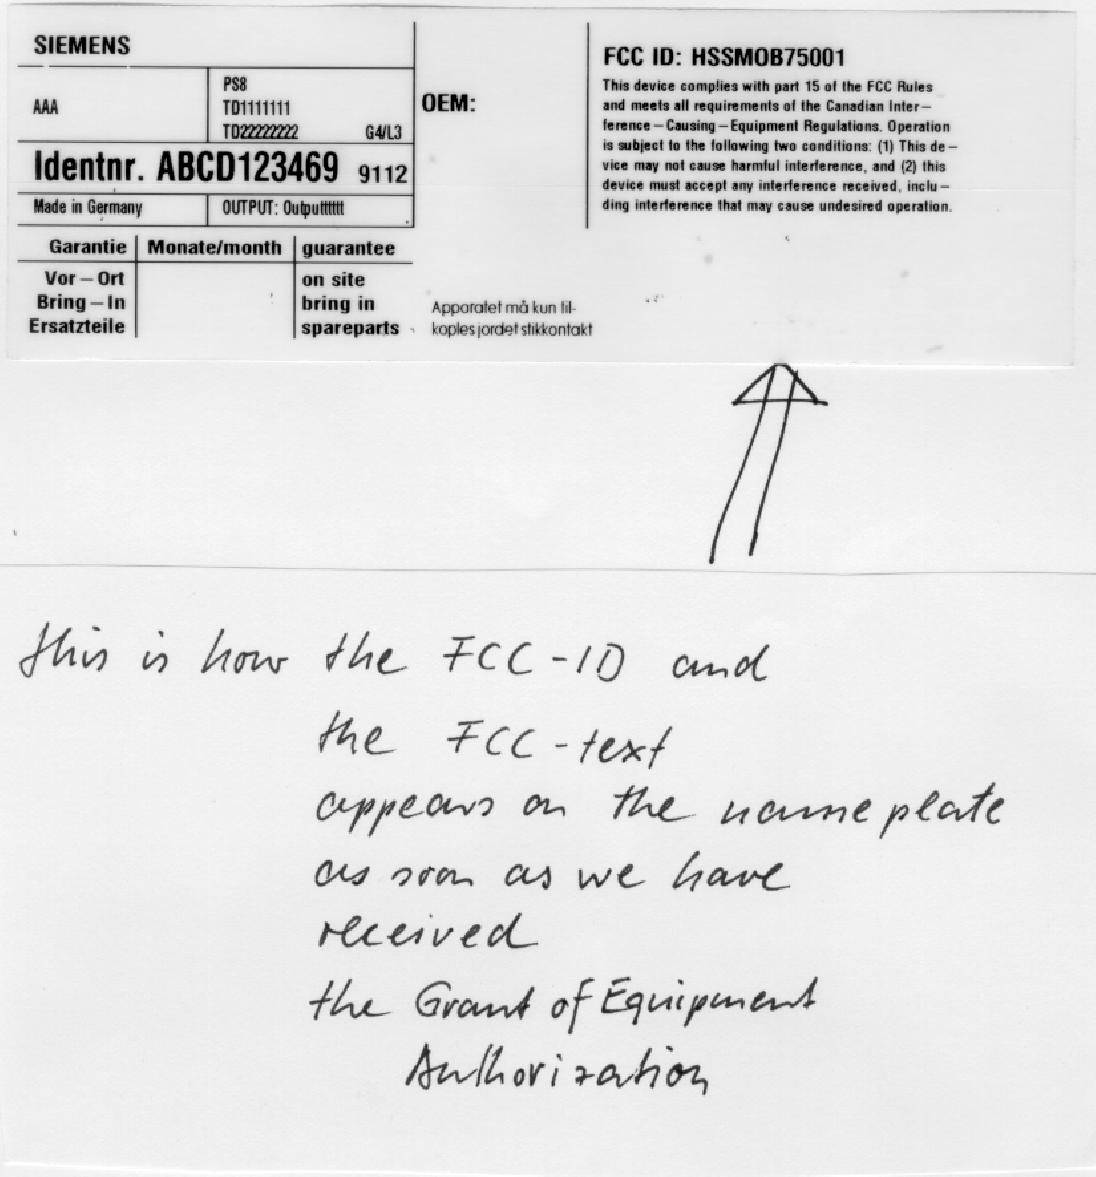 SIEMENS
AAA
PS8
TD1111111
TD22222222 G4/L3
Identnr. ABCD123469 9112
Made in Germany OUTPUT: Outputttttt
Garantie Monate/month guarantee
Vor – Ort on site
Bring – In bring in
Ersatzteile spareparts
OEM:
Apparatet må kun til-
koples jordet stikkontakt
FCC ID: HSSMOB75001
This device complies with part 15 of the FCC Rules
and meets all requirements of the Canadian Inter –
ference – Causing – Equipment Regulations. Operation
is subject to the following two conditions: (1) This de –
vice may not cause harmful interference, and (2) this
device must accept any interference received, inclu –
ding interference that may cause undesired operation.
this is how the FCC-ID and
the FCC-text
appears on the name plate
as soon as we have
received
the Grant of Equipment
Authorization